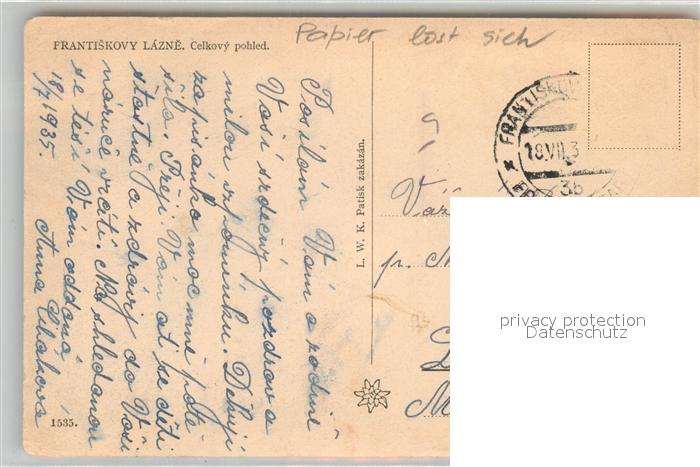 FRANTIŠKOVY LÁZNĚ. Celkový pohled.
Papier löst sich
Posílám Vám a rodině
Vaší srdečný pozdrav a
milou vzpomínku. Děkuji
za psaníčko moc mně jste
Přeji Vám ať se děti
šťastně a zdrávy do Vaší
náruče vrátí. Na shledanou
se těší Vám oddaná
Anna
18/7 1935.
1535.
L. W. K. Patisk zakázán.
FRANTIŠKOVY
18.VII.3
3b
Váž
pr. M
privacy protection
Datenschutz